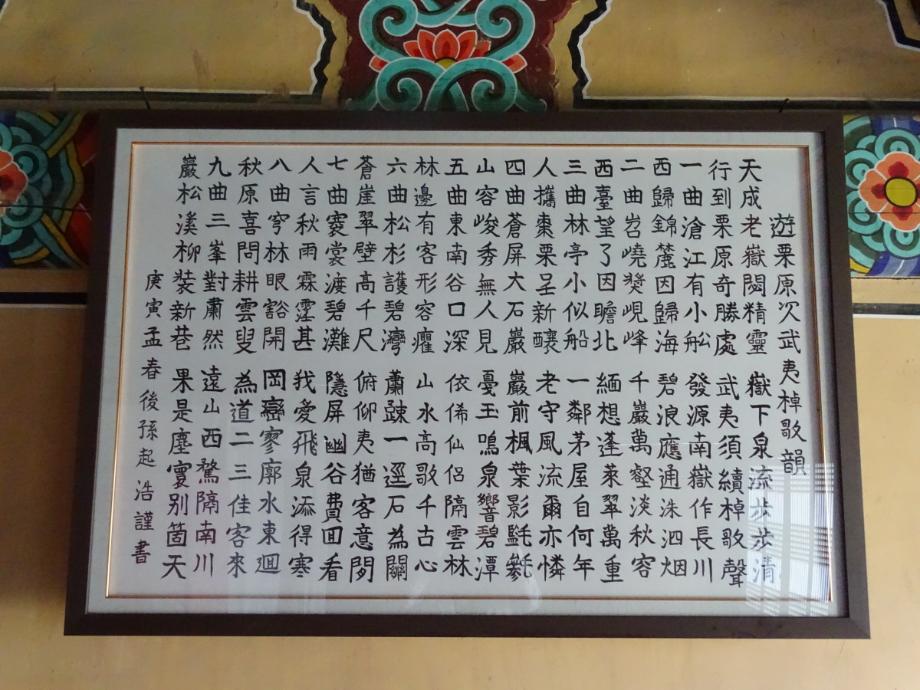 遊栗原次武夷棹歌韻
天成老嶽閟精靈 嶽下泉流步步淸
行到栗原奇勝處 武夷須續棹歌聲
一曲滄江有小舩 發源南嶽作長川
西歸錦麓因歸海 碧浪應通洙泗烟
二曲岧嶢幾峴峰 千巖萬壑淡秋容
西臺望了因瞻北 緬想蓬萊翠萬重
三曲林亭小似船 一鄰茅屋自何年
人攜棗栗呈新釀 老守風流爾亦憐
四曲蒼屏大石巖 巖前楓葉影毿毿
山容峻秀無人見 戛玉鳴泉響碧潭
五曲東南谷口深 依俙仙侶隔雲林
林邊有客形容癯 山水高歌千古心
六曲松杉護碧灣 蕭疎一逕石為關
蒼崖翠壁高千尺 俯仰夷猶客意閒
七曲褰裳渡碧灘 隱屏幽谷費回看
人言秋雨霖霪甚 我愛飛泉添得寒
八曲穹林眼豁開 岡巒寥廓水東迴
秋原喜問耕雲叟 為道二三佳客來
九曲三峯對肅然 遠山西騖隔南川
巖松溪柳裝新巷 果是塵寰別箇天
庚寅孟春後孫起浩謹書